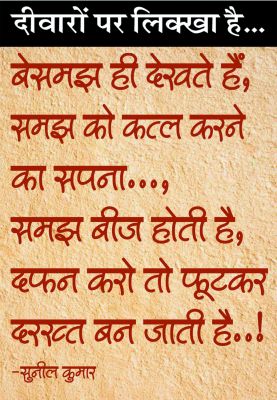 दीवारों पर लिक्खा है...
बेसमझ ही देखते हैं,
समझ को कत्ल करने
का सपना...,
समझ बीज होती है,
दफन करो तो फूटकर
दरख्त बन जाती है..!
-सुनील कुमार